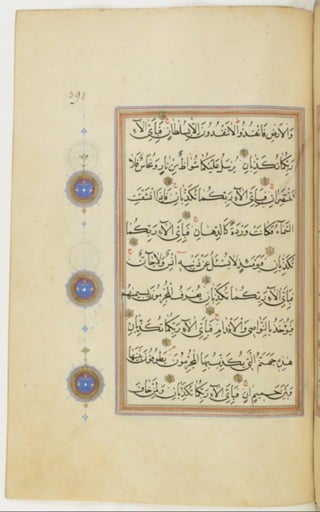 والارض فانفذوا لا تنفذون الا بسلطان فباي الاء
ربكما تكذبان يرسل عليكما شواظ من نار ونحاس فلا
تنتصران فباي الاء ربكما تكذبان فاذا انشقت
السماء فكانت وردة كالدهان فباي الاء ربكما
تكذبان فيومئذ لا يسئل عن ذنبه انس ولا جان
فباي الاء ربكما تكذبان يعرف المجرمون بسيميهم
فيؤخذ بالنواصي والاقدام فباي الاء ربكما تكذبان
هذه جهنم التي يكذب بها المجرمون يطوفون بينها
وبين حميم ان فباي الاء ربكما تكذبان ولمن خاف